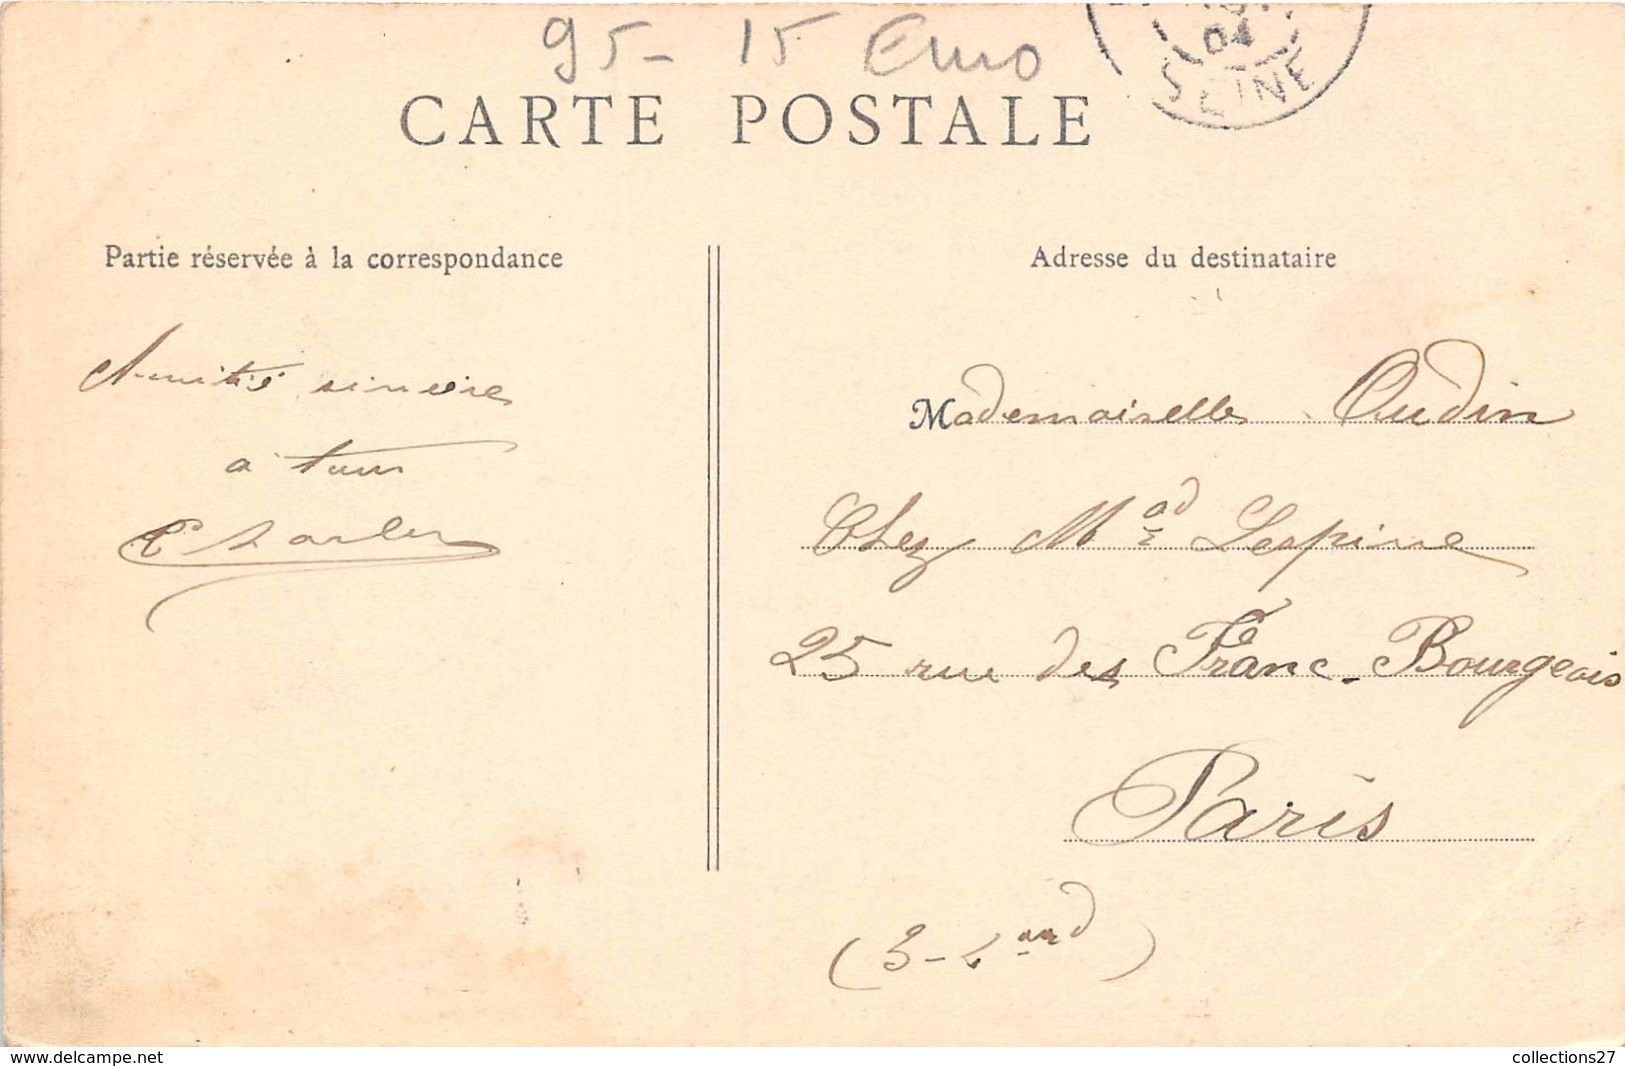 95- 15 Euro
04
SEINE
CARTE POSTALE
Partie réservée à la correspondance
Amitié sincère
à tous
Charles
Adresse du destinataire
Mademoiselle Oudin
Chez Mad Lespine
25 rue des Franc-Bourgeois
Paris
(3-
www.delcampe.net
collections27